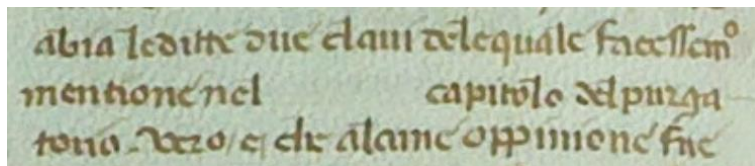 abia le ditte due claui dele quale facessemº
mentione nel capitolo del purga
torio. Vero / e, che alcune oppinione fue